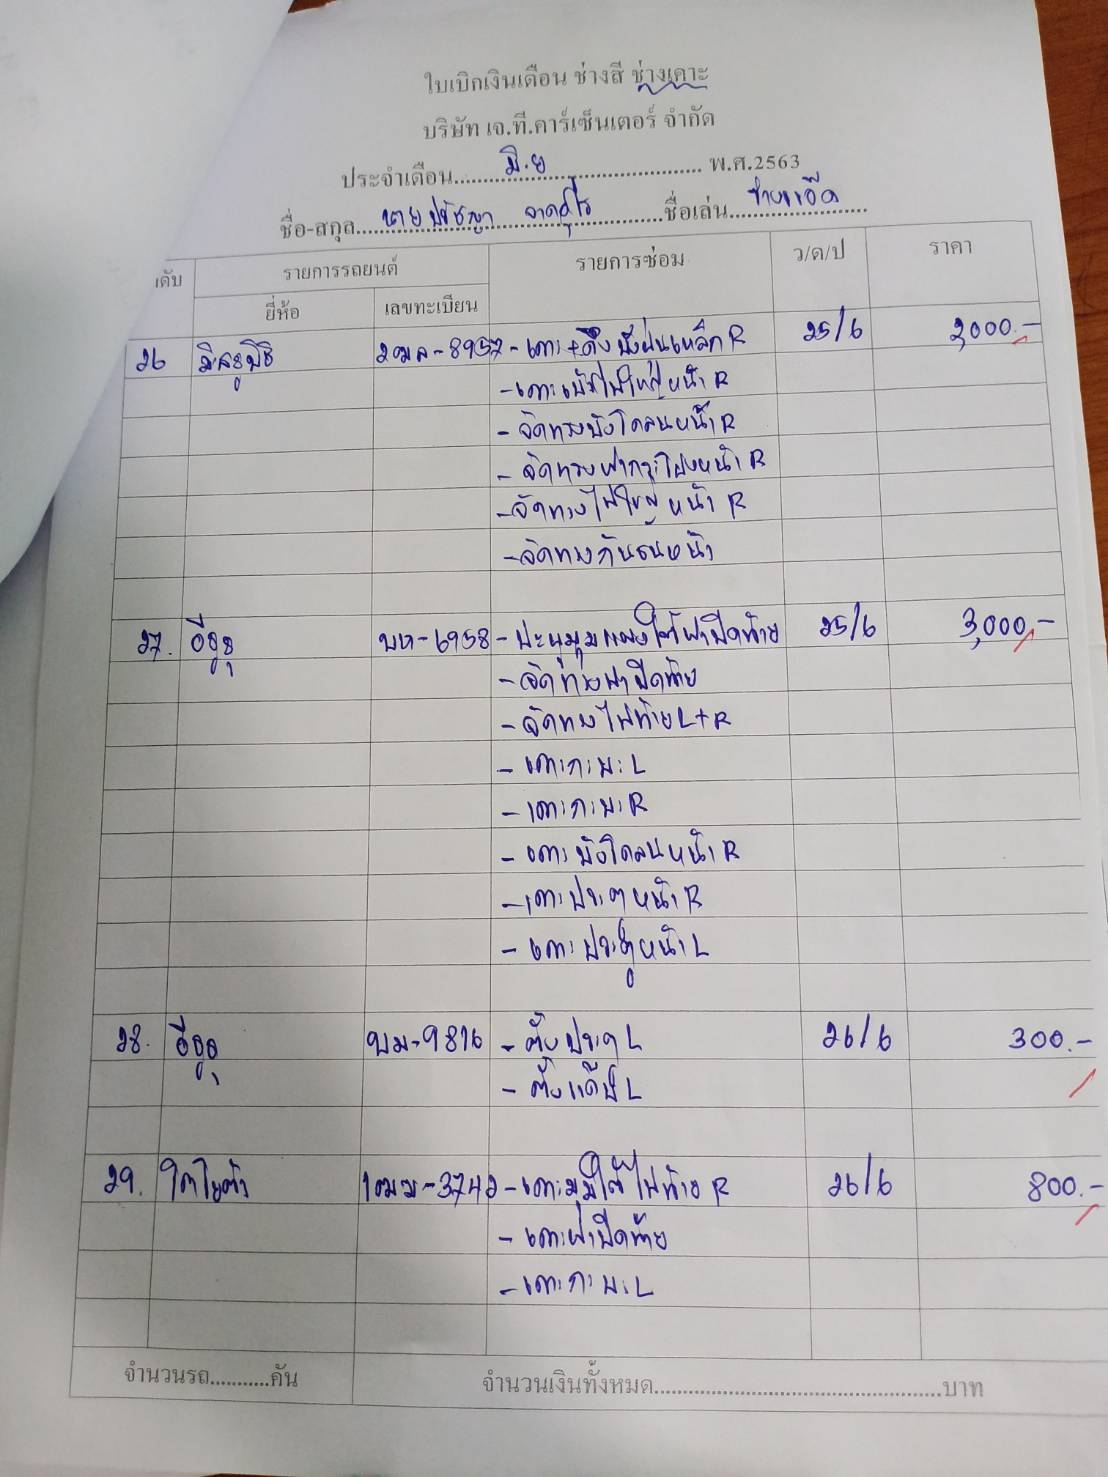 ใบเบิกเงินเดือน ช่างสี ช่างเคาะ
บริษัท เจ.ที.คาร์เซ็นเตอร์ จำกัด
ประจำเดือน....มิ.ย.... พ.ศ.2563
ชื่อ-สกุล....นาย....ชื่อเล่น....
ดับ รายการรถยนต์ รายการซ่อม ว/ด/ป ราคา
ยี่ห้อ เลขทะเบียน
26 มิตซูบิชิ 2ฒล-8957 - เคาะ+ดึง R 25/6 2,000.-
- เคาะเบ้าไฟใหญ่หน้า R
- จัดทรงบังโคลนหน้า R
- จัดทรงฝากระโปรงหน้า R
- จัดทรงไฟใหญ่หน้า R
- จัดทรงกันชนหน้า
27. อีซูซุ บห-6958 - ปะผุมุมแผงใต้ฝาปิดท้าย 25/6 3,000.-
- จัดทรงฝาปิดท้าย
- จัดทรงไฟท้าย L+R
- เคาะกะบะ L
- เคาะกะบะ R
- เคาะบังโคลนหน้า R
- เคาะประตูหน้า R
- เคาะประตูหน้า L
28. อีซูซุ บม-9816 - ตั้งประตู L 26/6 300.-
- ตั้งแค๊ป L
29. โตโยต้า 1ฒม-3742 - เคาะมุมใต้ไฟท้าย R 26/6 800.-
- เคาะฝาปิดท้าย
- เคาะกะบะ L
จำนวนรถ...........คัน จำนวนเงินทั้งหมด................................................บาท